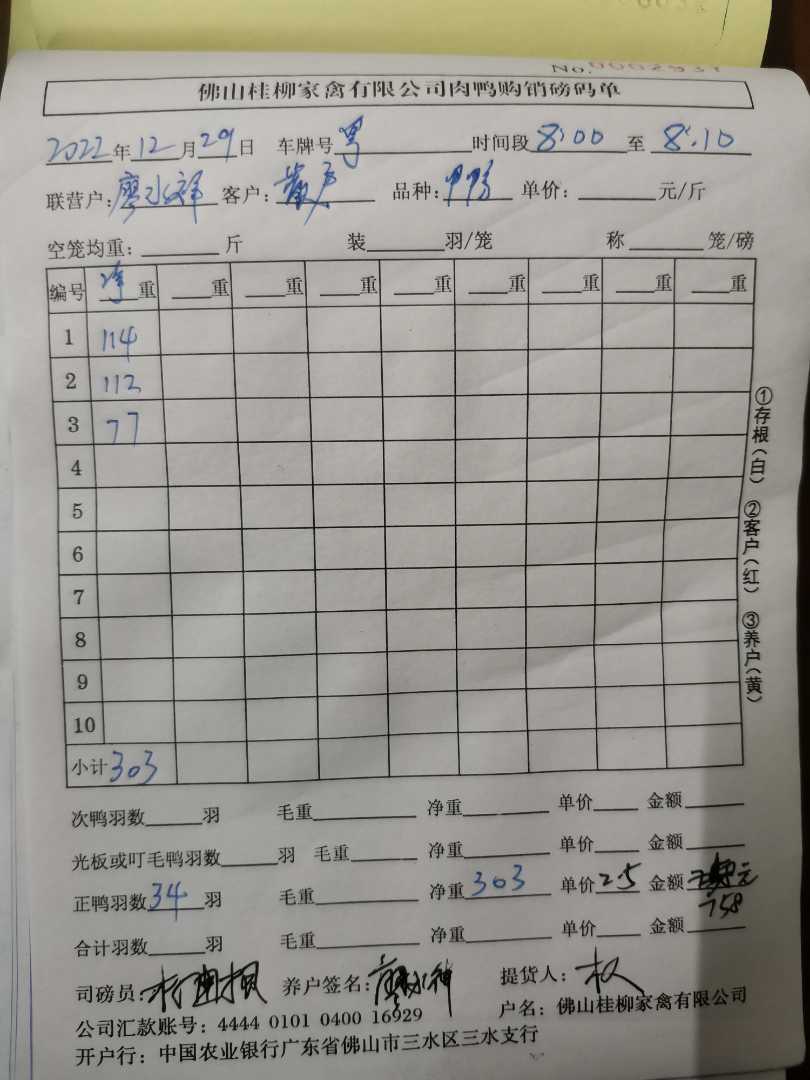 No. 0002931
佛山桂柳家禽有限公司肉鸭购销磅码单
2022年12月29日 车牌号粤 时间段8:00至8:10
联营户:廖水祥 客户:散户 品种: 单价:元/斤
空笼均重:斤 装羽/笼 称笼/磅
编号 净重 重 重 重 重 重 重 重 重
1 114
2 112
3 77
4
5
6
7
8
9
10
小计 303
①存根(白) ②客户(红) ③养户(黄)
次鸭羽数羽 毛重 净重 单价 金额
光板或叮毛鸭羽数羽 毛重 净重 单价 金额
正鸭羽数34羽 毛重 净重303 单价2.5 金额 元
758
合计羽数羽 毛重 净重 单价 金额
司磅员: 养户签名:廖水神 提货人:权
公司汇款账号:4444 0101 0400 16929 户名:佛山桂柳家禽有限公司
开户行:中国农业银行广东省佛山市三水区三水支行